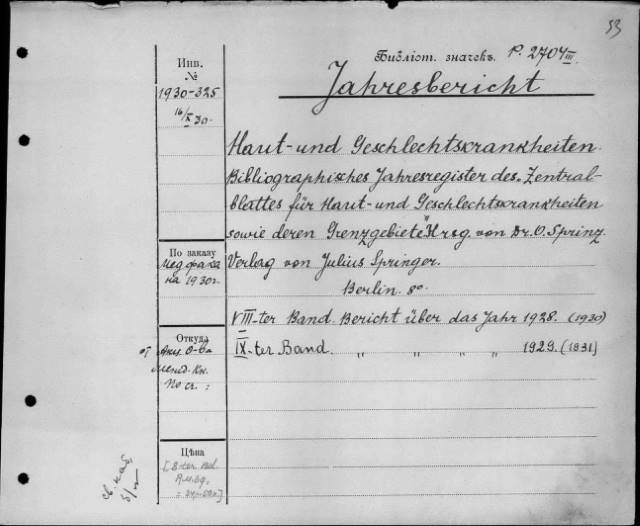 53
Библіот. значекъ. P. 2704 III.
Jahresbericht
Инв.
№
1930-325
16/X 30.
Haut- und Geschlechtskrankheiten.
Bibliographisches Jahresregister des „Zentral-
blattes für Haut- und Geschlechtskrankheiten
sowie deren Grenzgebiete" Hrsg. von Dr. O. Sprinz.
По заказу
Медфака
на 1930г.
Verlag von Julius Springer.
Berlin. 8°.
VIII-ter Band. Bericht über das Jahr 1928. (1930)
Откуда
от Акц. О-ва
IX-ter Band. „ „ „ „ 1929. (1931)
Межд. Кн.
По сч.:
Цѣна
[8-ter Bd